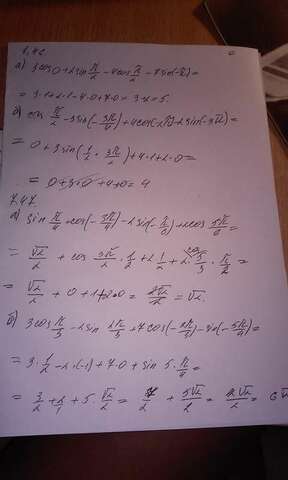 7.42
а) 3cos0+2sin π/2 -4cos π/2 -7sin(-π)=
=3·1+2·1-4·0+7·0=3+2=5.
б) cos π/2 -3sin(-3π/4)+4cos(-2π)-2sin(-3π)=
=0+3sin(1/2 · 3π/2)+4·1+2·0=
=0+3·0+4+0=4
7.47
а) sin π/4 + cos(-3π/4)-2sin(-π/6)+2cos 5π/6=
=√2/2 + cos 3π/2 · 1/2 +2 1/2 +2·cos 5/3 · π/2=
=√2/2 + 0 + 1+2·0= 2√2/2 = √2.
б) 3cos π/3 -2sin 2π/3 +7cos(-π/3)-sin(-5π/4)=
=3·1/2 -2·(-1)+7·0+sin 5·π/4=
=3/2 + 2/1 + 5·√2/2= 7/2 + 5√2/2=